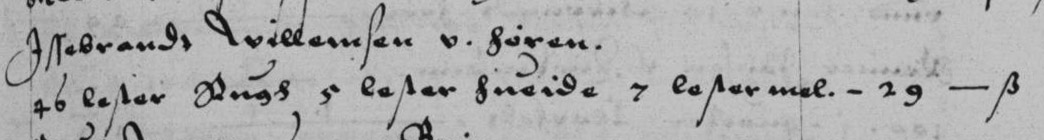 Issebrandt Willemsen v. Horen.
46 lester Rugh 5 lester hueide 7 lester mel. - 29 — ß